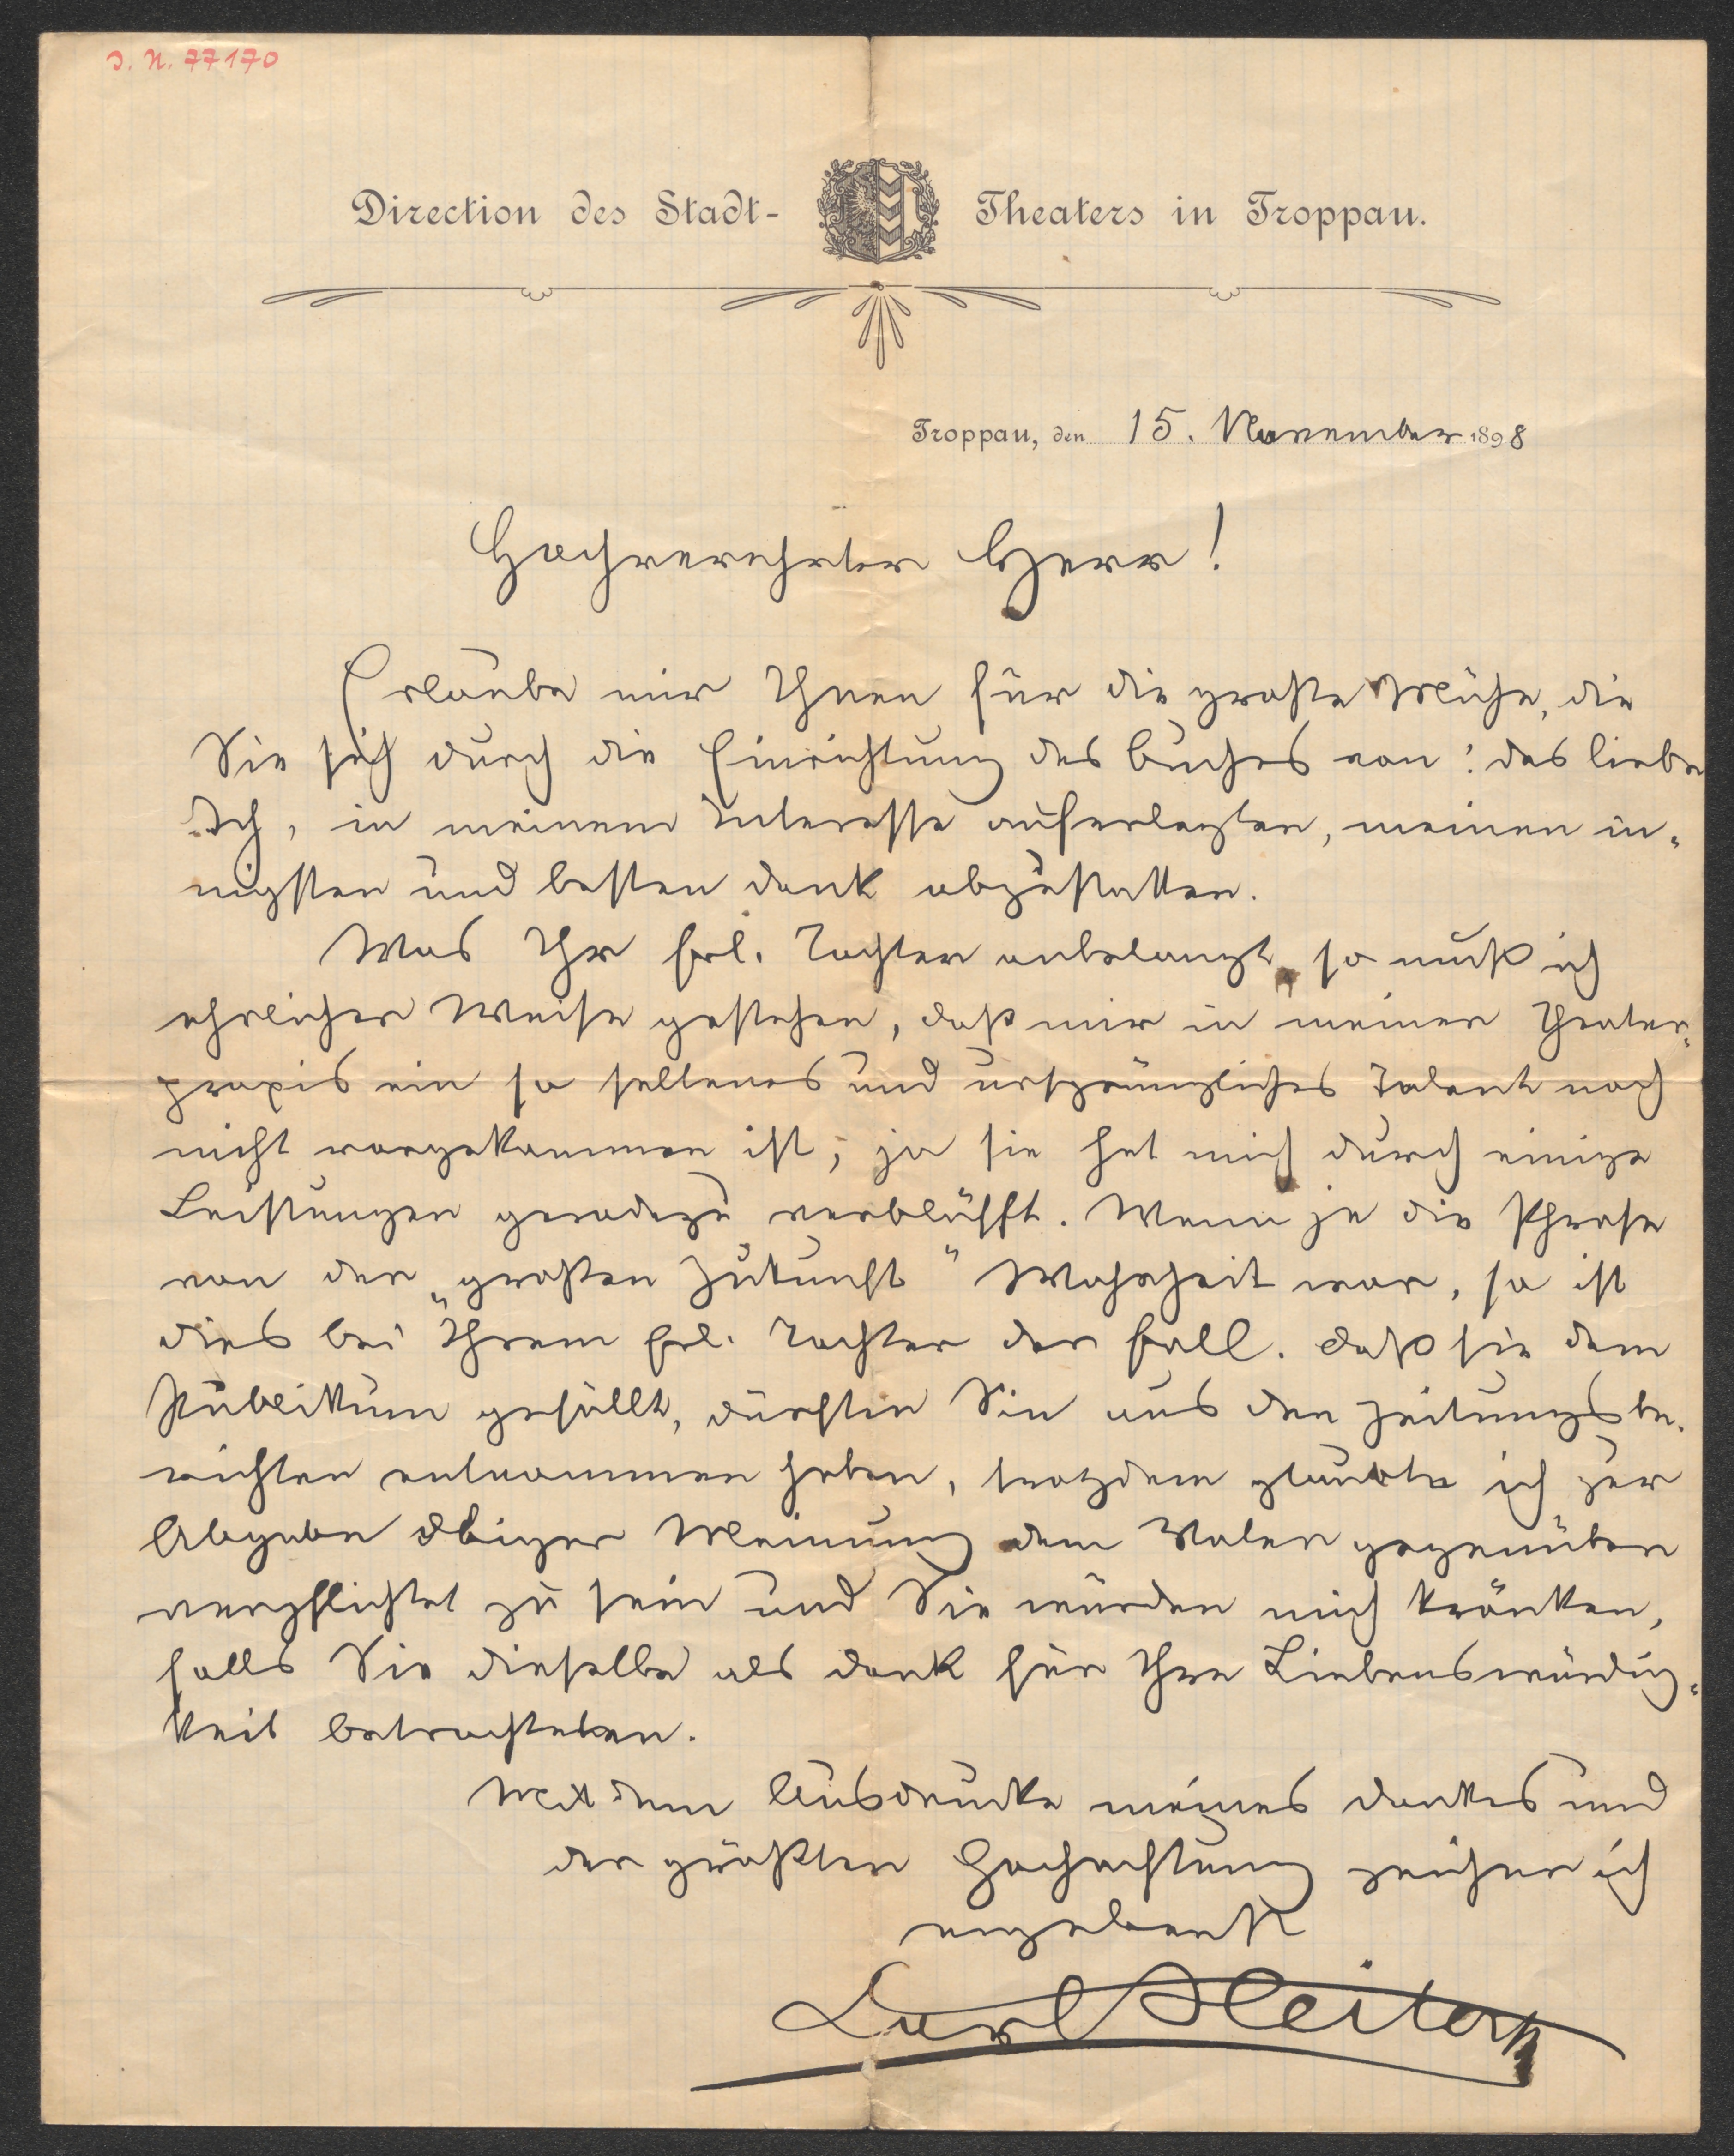 J. N. 77170
Direction des Stadt- Theaters in Troppau.
Troppau, den 15. November 1898
Hochverehrter Herr!
Erlaube mir Ihnen für die große Mühe, die
Sie sich durch die Einrichtung des Buches von: das liebe
Ich, in meinem Interesse auferlegten, meinen in-
nigsten und besten Dank abzustatten.
Was Ihr Frl. Tochter anbelangt, so muß ich
ehrlicher Weise gestehen, daß mir in meiner Theater-
praxis ein so seltenes und ursprüngliches Talent noch
nicht vorgekommen ist; ja sie hat mich durch einige
Leistungen geradezu verblüfft. Wenn je die Phrase
von der „großen Zukunft" Wahrheit war, so ist
dies bei Ihrem Frl. Tochter der Fall. Daß sie dem
Publikum gefällt, dürften Sie aus den Zeitungsbe-
richten entnommen haben, trotzdem glaubte ich zur
Abgabe obiger Meinung dem Vater gegenüber
verpflichtet zu sein und Sie würden mich kränken,
falls Sie dieselbe als Dank für Ihre Liebenswürdig-
keit betrachteten.
Mit dem Ausdrucke meines Dankes und
der größten Hochachtung zeichne ich
ergebenst
Carl